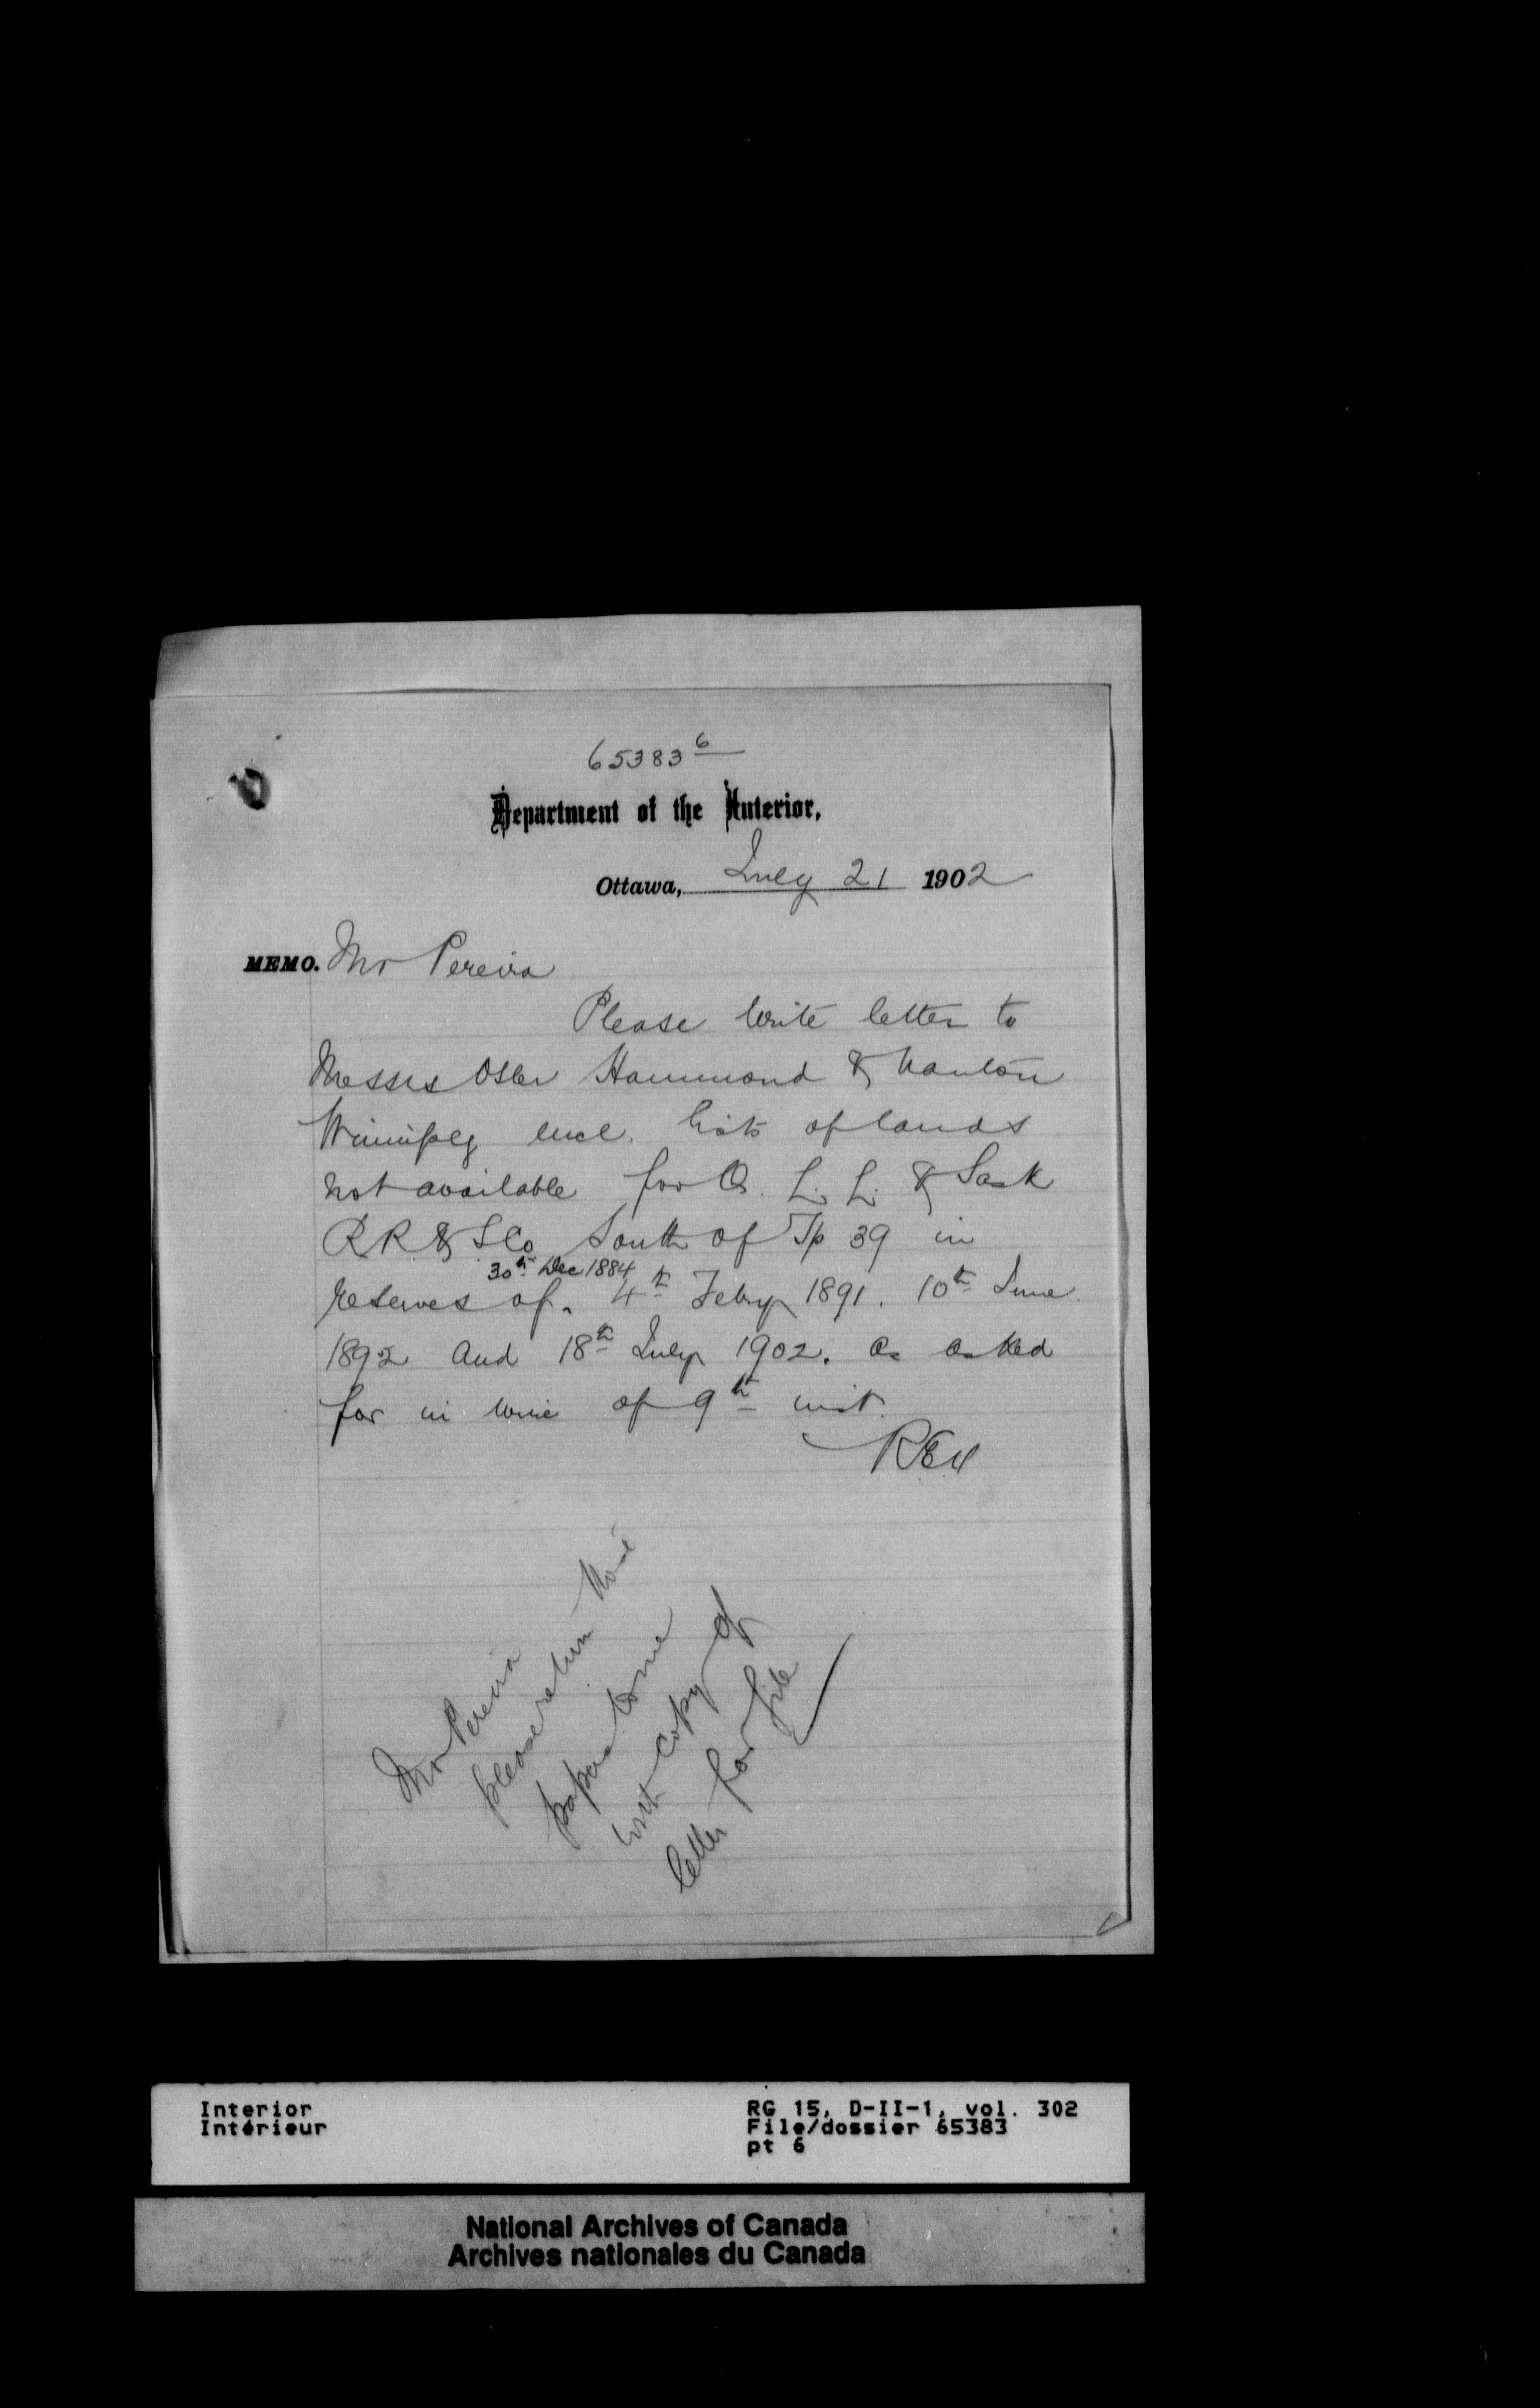 65383 6
Department of the Interior,
Ottawa, July 21 1902
MEMO. Mr Pereira
Please write letter to
Messrs Osler Hammond & Nanton
Winnipeg encl. lists of lands
not available for Q. L. L. & Sask
RR & S Co South of Tp 39 in
30th Dec 1884
reserves of 4th Feby 1891. 10th June
1892 and 18th July 1902. as asked
for in wire of 9th inst.
Mr Pereira
please return
papers to me
with copy of
letter for file
Interior
Intérieur
RG 15, D-II-1, vol. 302
File/dossier 65383
pt 6
National Archives of Canada
Archives nationales du Canada